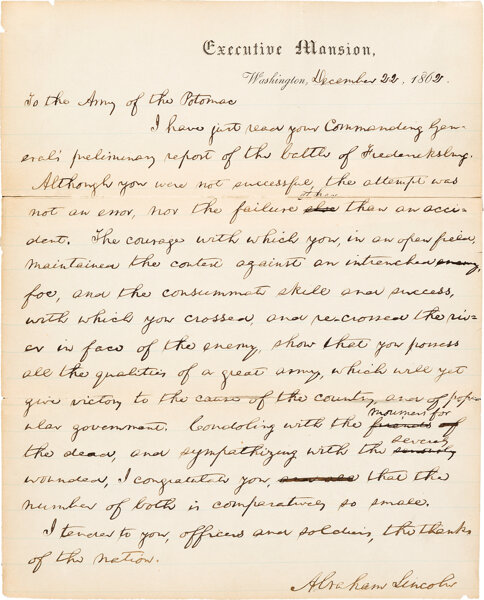 Executive Mansion,
Washington, December 22, 1862.
To the Army of the Potomac
I have just read your Commanding Gen-
eral's preliminary report of the battle of Fredericksburg.
Although you were not successful, the attempt was
not an error, nor the failure other than an acci-
dent. The courage with which you, in an open field,
maintained the contest against an intrenched enemy,
foe, and the consummate skill and success,
with which you crossed, and re-crossed the riv-
er in face of the enemy, show that you possess
all the qualities of a great army, which will yet
give victory to the cause of the country and of popu-
lar government. Condoling with the friends of mourners for
the dead, and sympathizing with the severely
wounded, I congratulate you, that the
number of both is comparatively so small.
I tender to you, officers and soldiers, the thanks
of the nation.
Abraham Lincoln